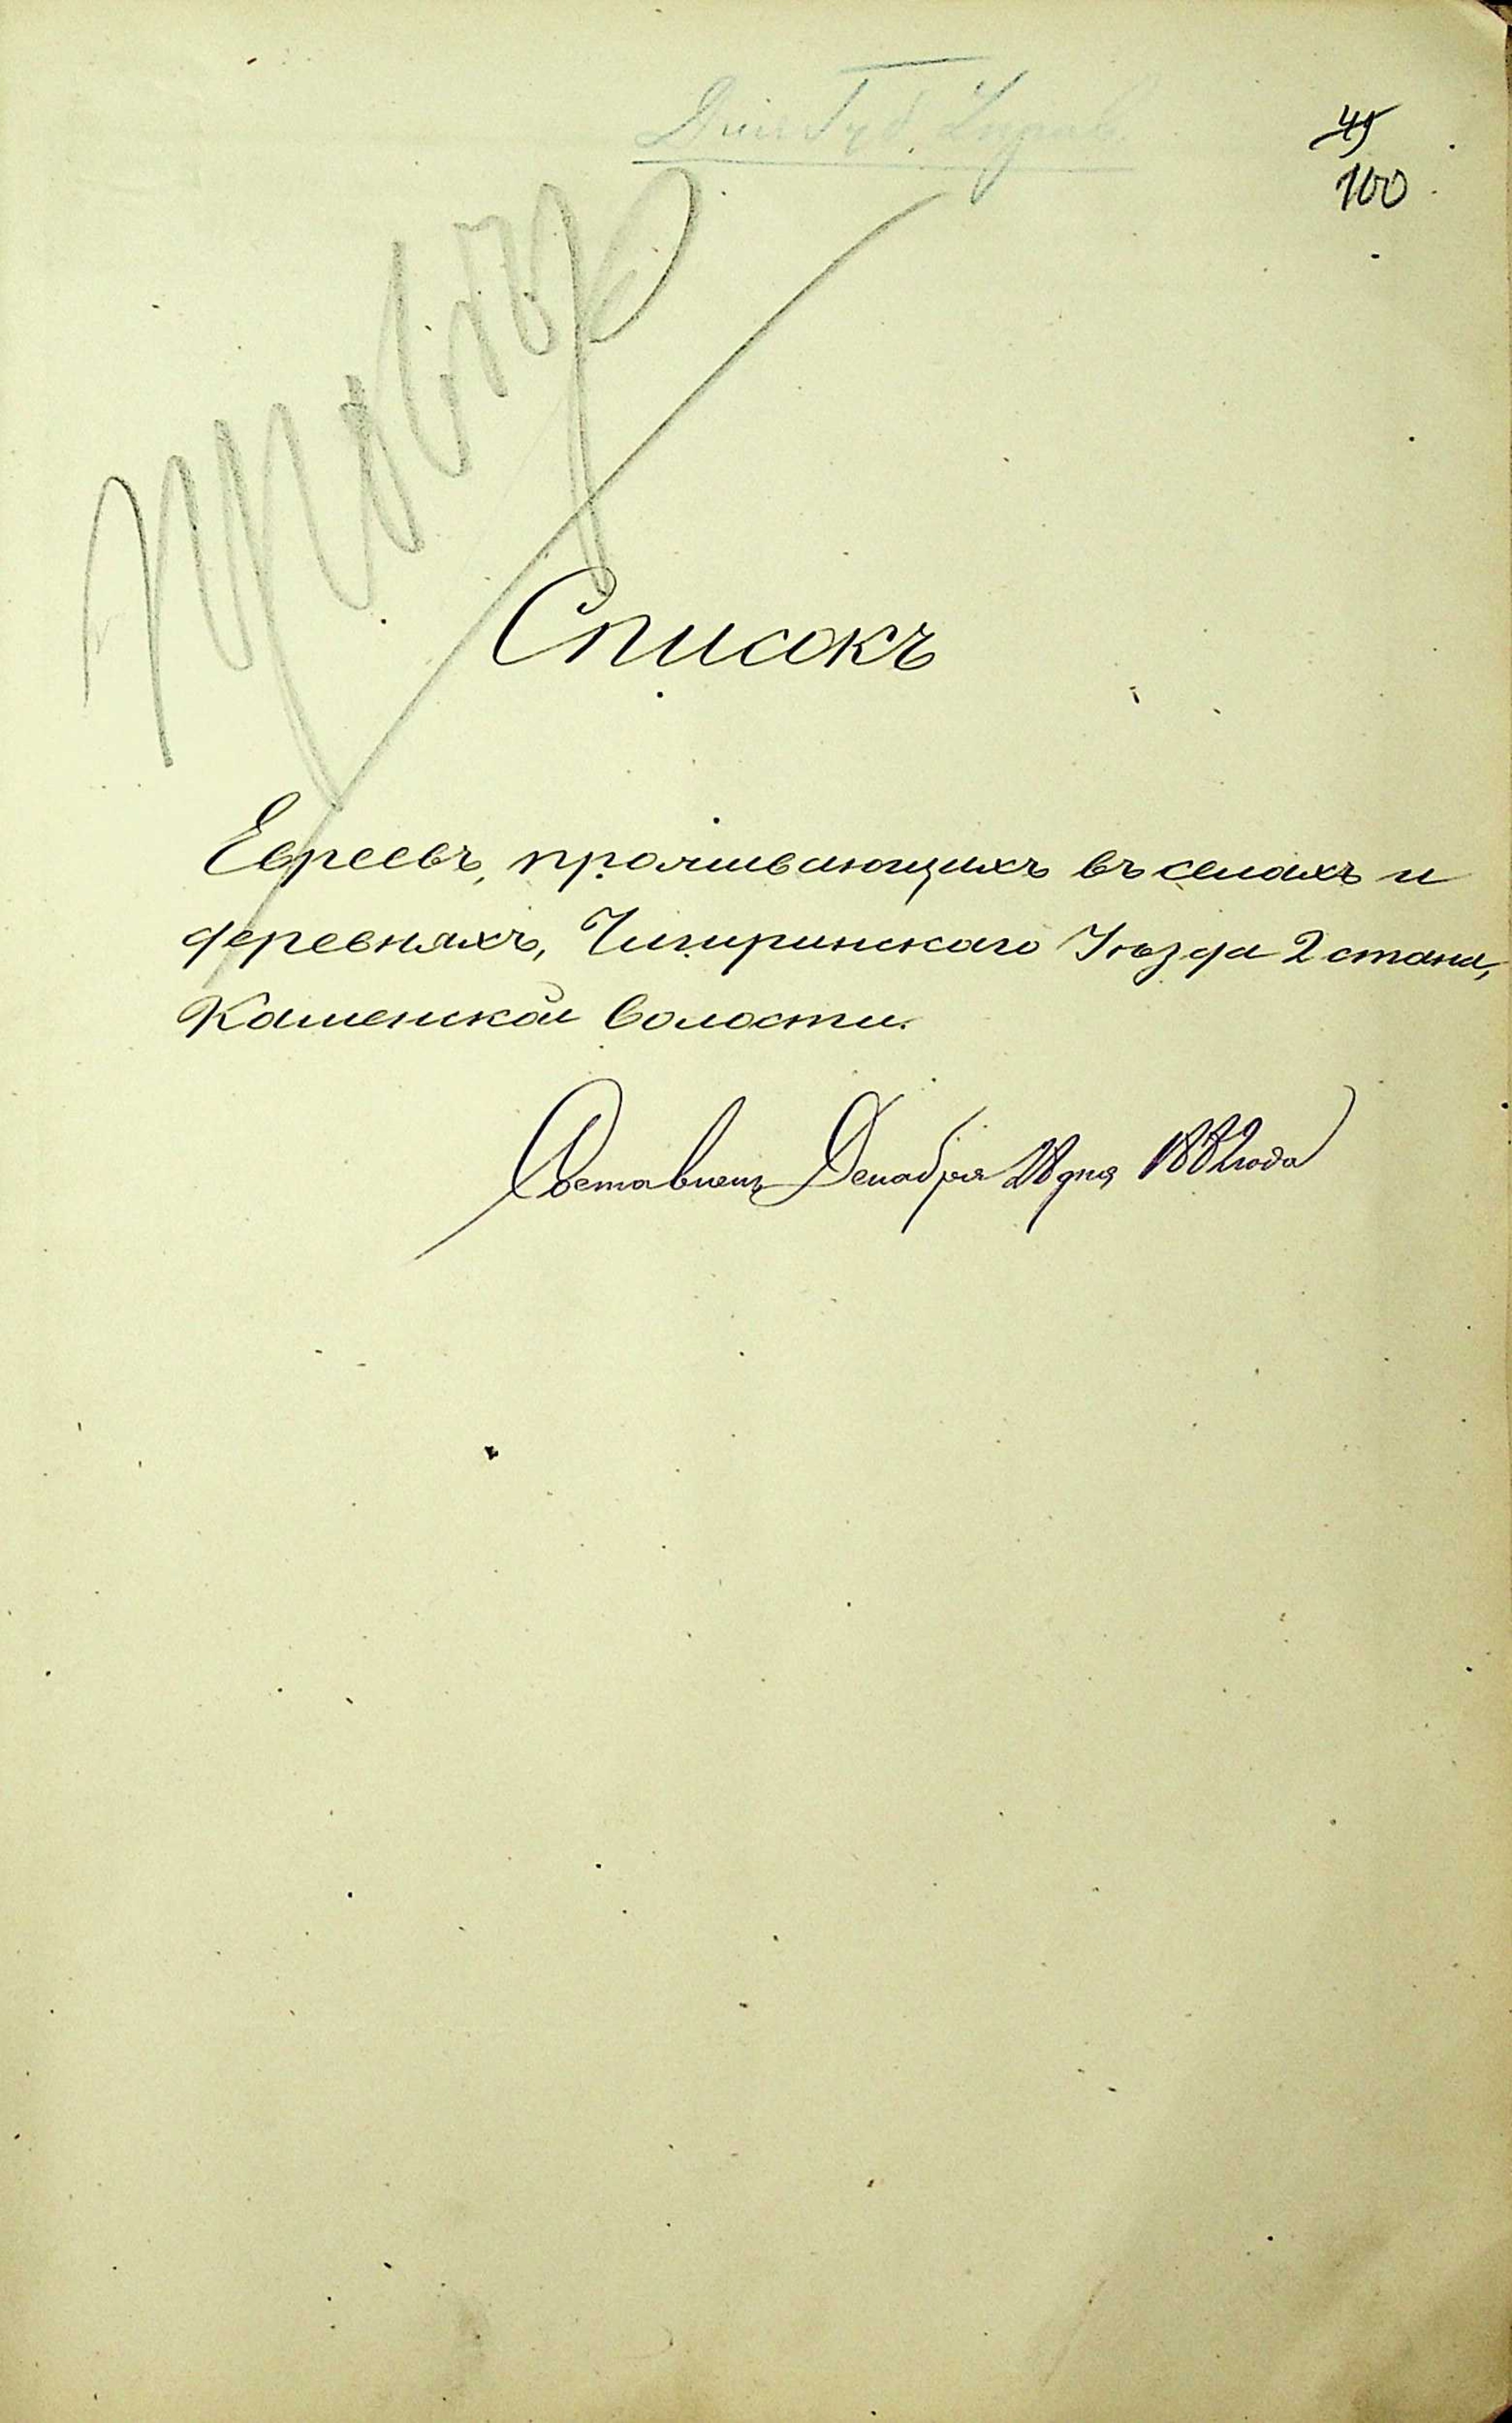 Для Губ. Управ.
45
100
Списокъ
Евреевъ, проживающихъ въ селахъ и
деревняхъ, Чигиринскаго Уѣзда 2 стана,
Каменской волости.
Составленъ Декабря 28 дня 1882 года